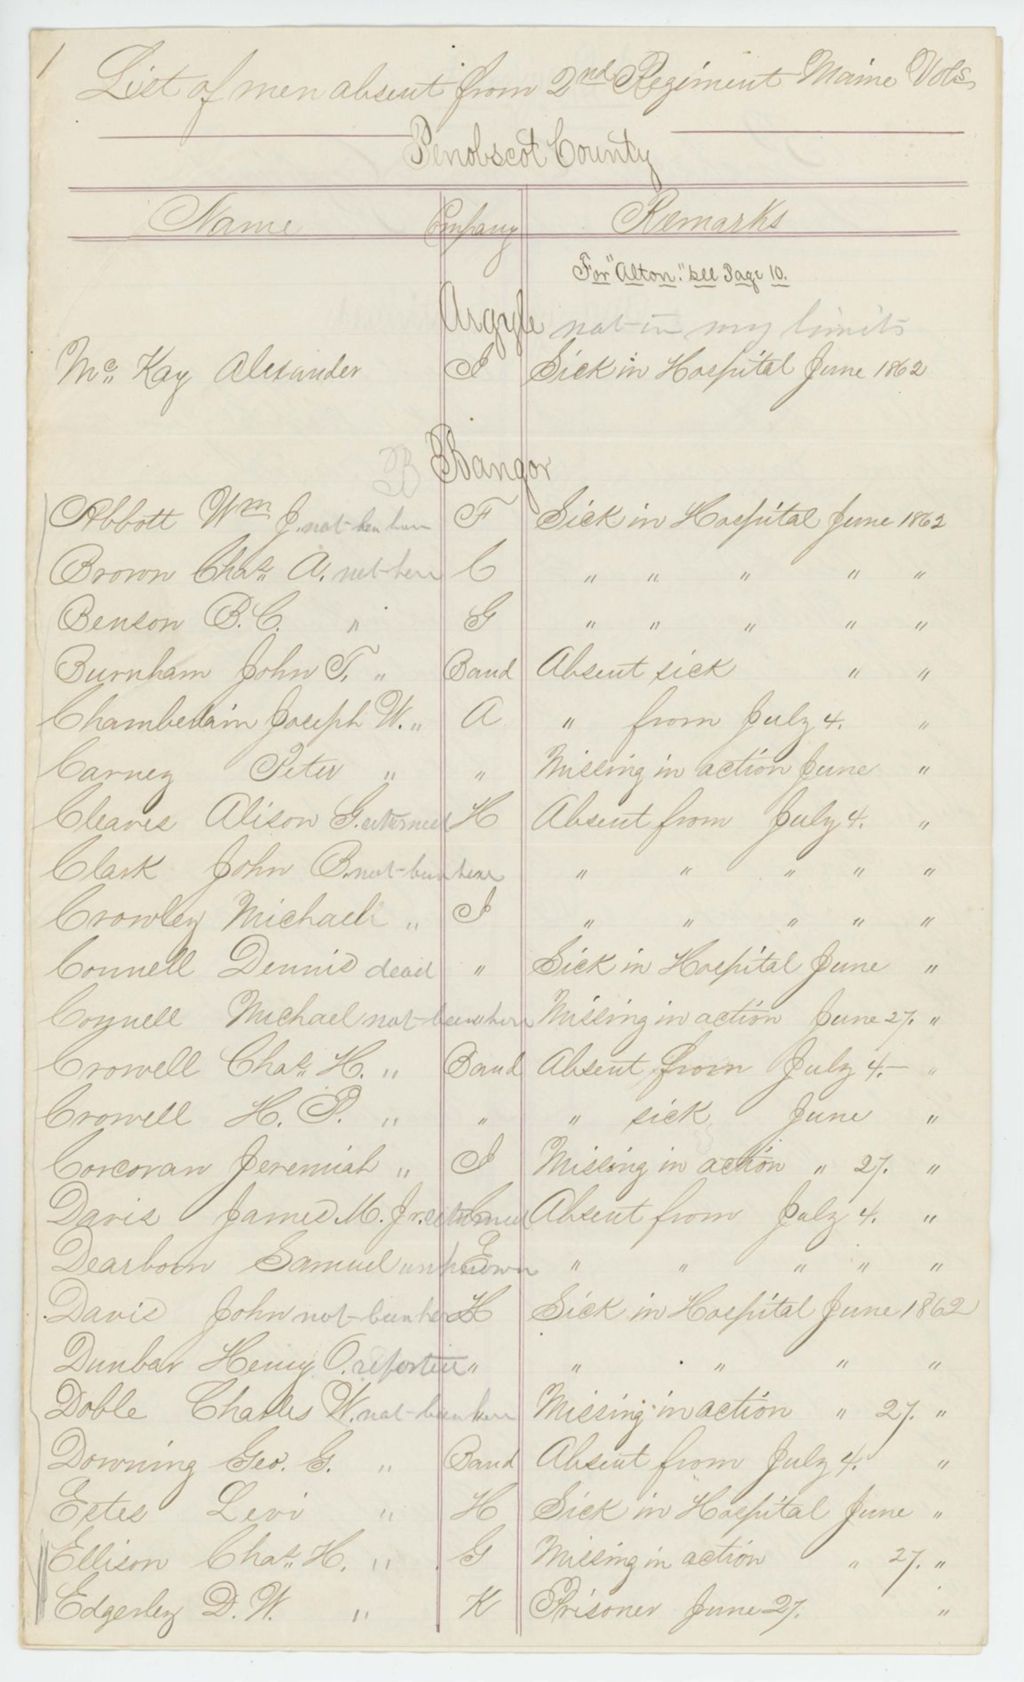 1
List of men absent from 2nd Regiment Maine Vols
Penobscot County
Name Company Remarks
For "Alton." see Page 10.
Argyle not in my limits
Mc Kay Alexander I Sick in Hospital June 1862
B Bangor
Abbott Wm J. not been here F Sick in Hospital June 1862
Brown Chas. A. not here C " " " " "
Benson B. C. " G " " " " "
Burnham John T. " Band Absent sick " "
Chamberlain Joseph W. " A " from July 4. "
Carney Peter " " Missing in action June "
Cleaves Alison G. returned H Absent from July 4. "
Clark John B. not been here " " " " "
Crowley Michael " I " " " " "
Connell Dennis dead " Sick in Hospital June "
Connell Michael not been here Missing in action June 27. "
Crowell Chas. H. " Band Absent from July 4.- "
Crowell H. P. " " " sick June "
Corcoran Jeremiah " I Missing in action " 27. "
Davis James M. Jr. returned C Absent from July 4. "
Dearborn Samuel unknown E " " " " "
Davis John not been here H Sick in Hospital June 1862
Dunbar Henry O. " " " " "
Doble Charles W. not been here " Missing in action " 27. "
Downing Geo. G. " Band Absent from July 4. "
Estes Levi " H Sick in Hospital June "
Ellison Chas. H. " G Missing in action " 27. "
Edgerley D. W. " K Prisoner June 27. "